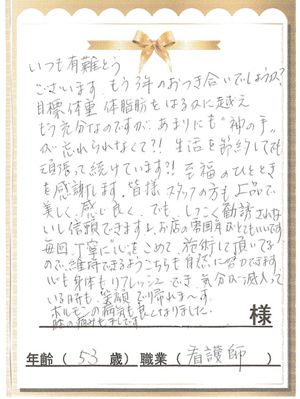 いつも有難とう
ございます。もう3年のおつき合いでしょうか?
目標体重 体脂肪をはるかに越え
もう充分なのですが、あまりにも"神の手"
が忘れられなくて?! 生活を節約してでも
頑張って続けています?! 至福のひととき
を感謝します。皆様 スタッフの方も上品で
美しく、感じ良く、でも、しつこく勧誘されな
いし信頼できますし、お店の雰囲気がとてもいいです
毎回、丁寧に"心"をこめて、施術して頂いてる
ので、維持できるようこちらも自然に努力できます
心も身体もリフレッシュでき、気分が滅入って
いる時も、笑顔で帰れま〜す
ホルモンの病気も良くなりました。
膝の痛みもまし
様
年齢( 53 歳) 職業( 看護師 )